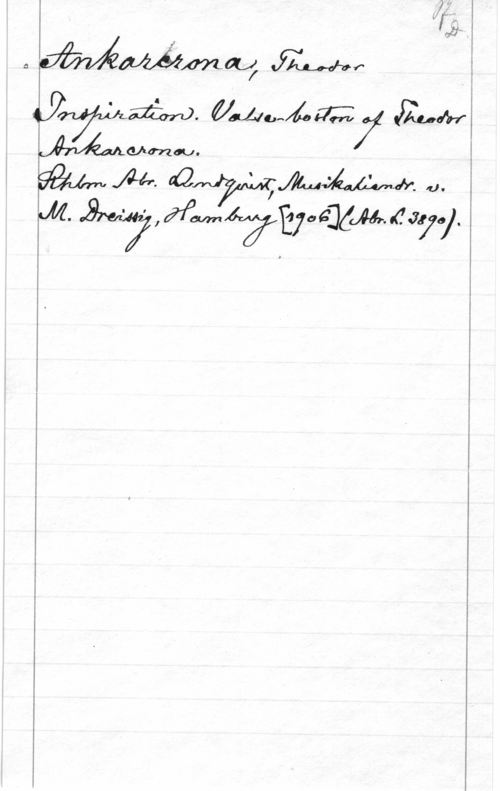 Ankarcrona, Theodor
Inspiration. Valse-boston af Theodor
Ankarcrona.
Sthlm Abr. Lundquist, Musikaliendr. v.
M. Dreissig, Hamburg [1906] (Abr. L. 3890).